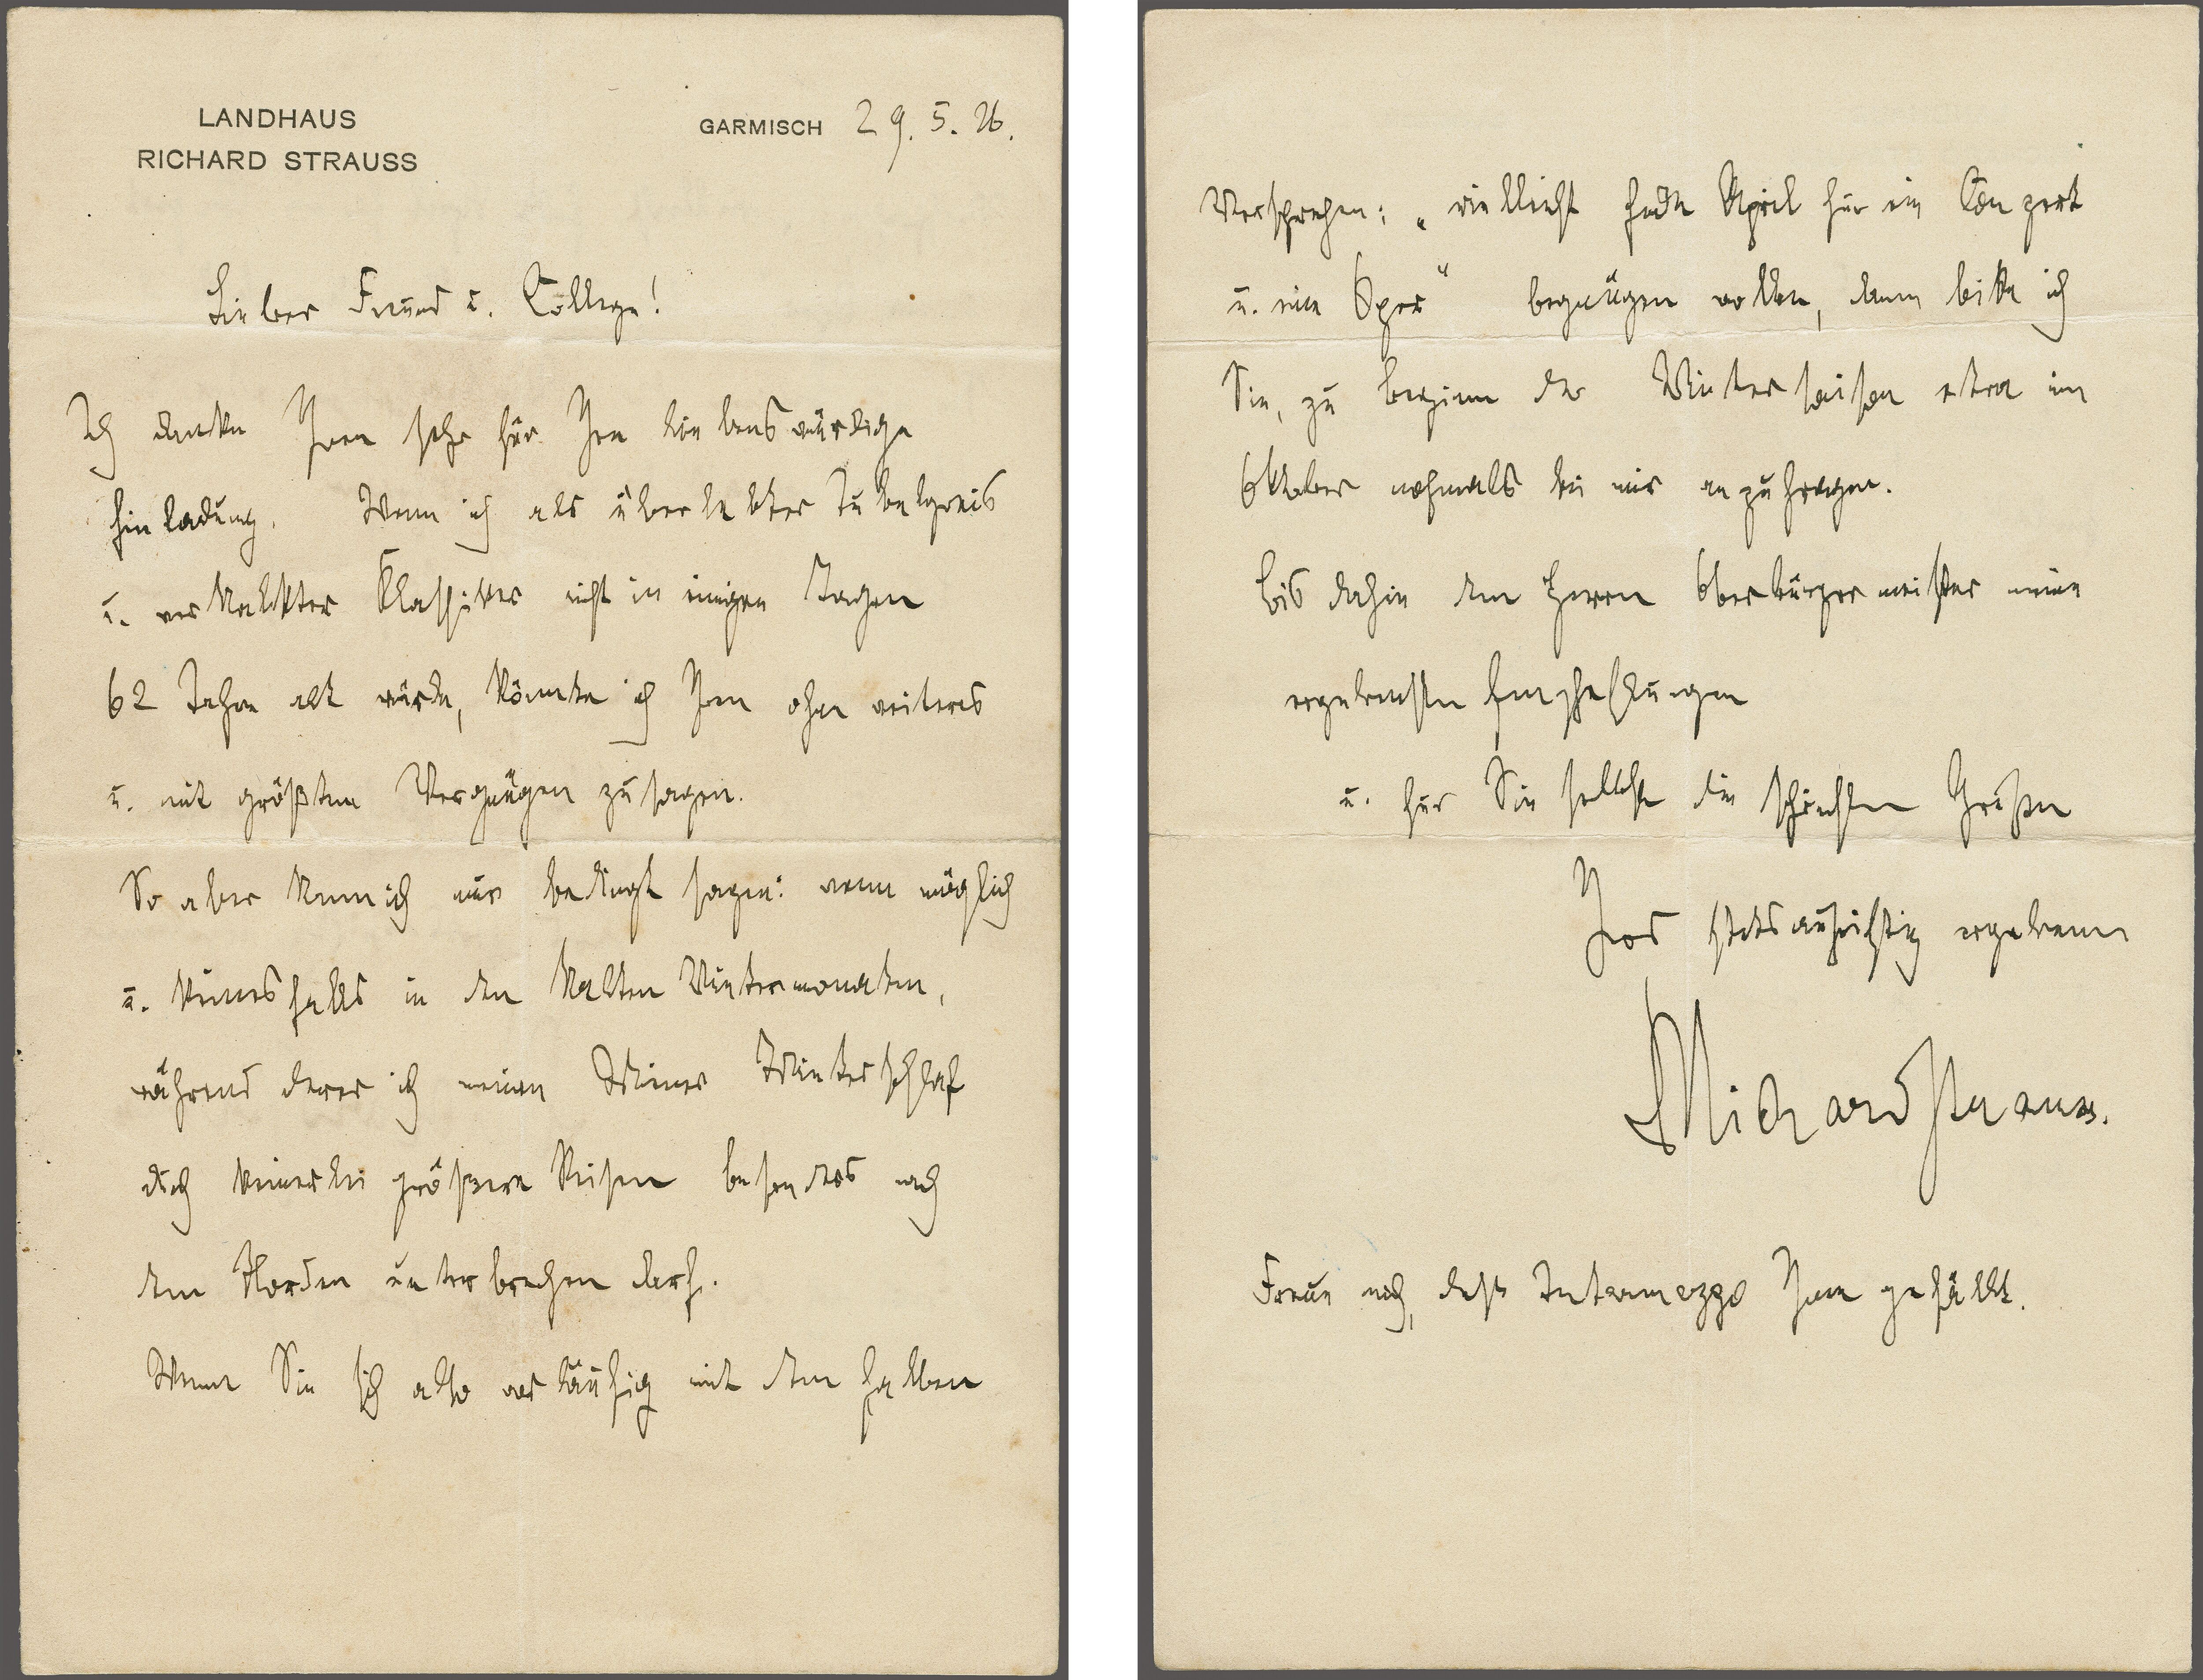 LANDHAUS
RICHARD STRAUSS
GARMISCH 29. 5. 26.
Lieber Freund u. College!
Ich danke Ihnen sehr für Ihre liebenswürdige
Einladung. Wenn ich als überlebter Jubelgreis
u. verkalkter Klassiker nicht in einigen Tagen
62 Jahre alt würde, könnte ich Ihnen ohne weiteres
u. mit größtem Vergnügen zusagen.
So aber kann ich nur bedingt sagen: wenn möglich
u. keinesfalls in den kalten Wintermonaten,
während derer ich meinen Wiener Winterschlaf
durch keinerlei größere Reisen besonders nach
dem Norden unterbrechen darf.
Wenn Sie sich also vorläufig mit dem halben
Versprechen: „vielleicht Ende April für ein Conzert
u. eine Oper“ begnügen wollen, dann bitte ich
Sie, zu Beginn der Wintersaison etwa im
Oktober nochmals bei mir anzufragen.
Bis dahin dem Herrn Oberbürgermeister meine
ergebensten Empfehlungen
u. für Sie selbst die schönsten Grüße
Ihres stets aufrichtig ergebenen
Richard Strauss.
Freue mich, daß Intermezzo Ihnen gefällt.